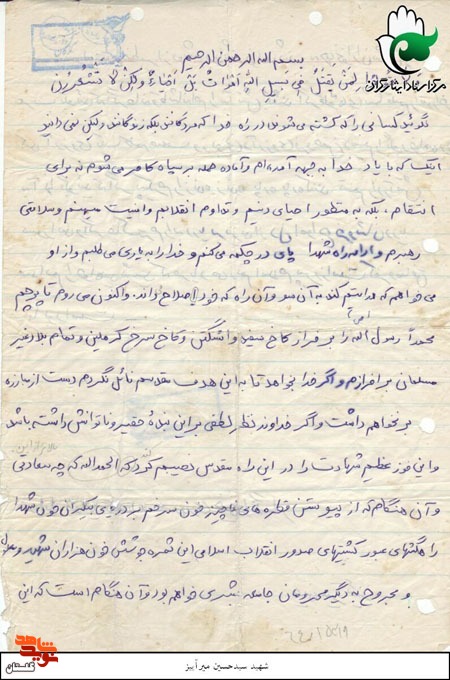 مرکز اسناد ایثارگران
بسم الله الرحمن الرحیم
و لا تقولوا لمن یقتل فی سبیل الله اموات بل احیاء ولکن لا تشعرون
نگوئید کسانی را که کشته می‌شوند در راه خدا که مردگانند بلکه زندگانند ولیکن نمی‌دانید
اینک که با یاد خدا به جبهه آمده‌ام و آماده حمله بر سپاه کافر می‌شوم نه برای
انتقام، بلکه به منظور احیای دینم و تداوم انقلابم و امنیت میهنم و سلامتی
رهبرم و ادامه راه شهدا پای در چکمه می‌کنم و خدا را به یاری می‌طلبم و از او
می‌خواهم که هدایتم کند به آن سو و آن راه که خود اصلاح داند. و اکنون می‌روم تا پرچم
محمداً رسول الله را بر فراز کاخ سفید واشنگتن و کاخ سرخ کرملین و تمام بلاد غیر
مسلمانی بر افرازم و اگر خدا بخواهد تا به این هدف مقدسم نائل نگردم دست از مبارزه
بر نخواهم داشت و اگر خداوند نظر لطفی بر این بندهٔ حقیر و ناتوانش داشته باشد
و این فوز عظیم شهادت را در این راه مقدس نصیبم کرد که الحمدالله که چه سعادتی
و آن هنگام که از پیوستن قطره‌های ناچیز خون سرخم بر دریای بیکران خون شهدا
را هگشای عبور کشتیهای صدور انقلاب اسلامی این ثمره جوشش خون هزاران شهید و معلول
و مجروح به دیگر محرومان جامعه بشری خواهم بود و آن هنگام است که این
نوید شاهد
گلستان
شهید سیدحسین میرآبیز